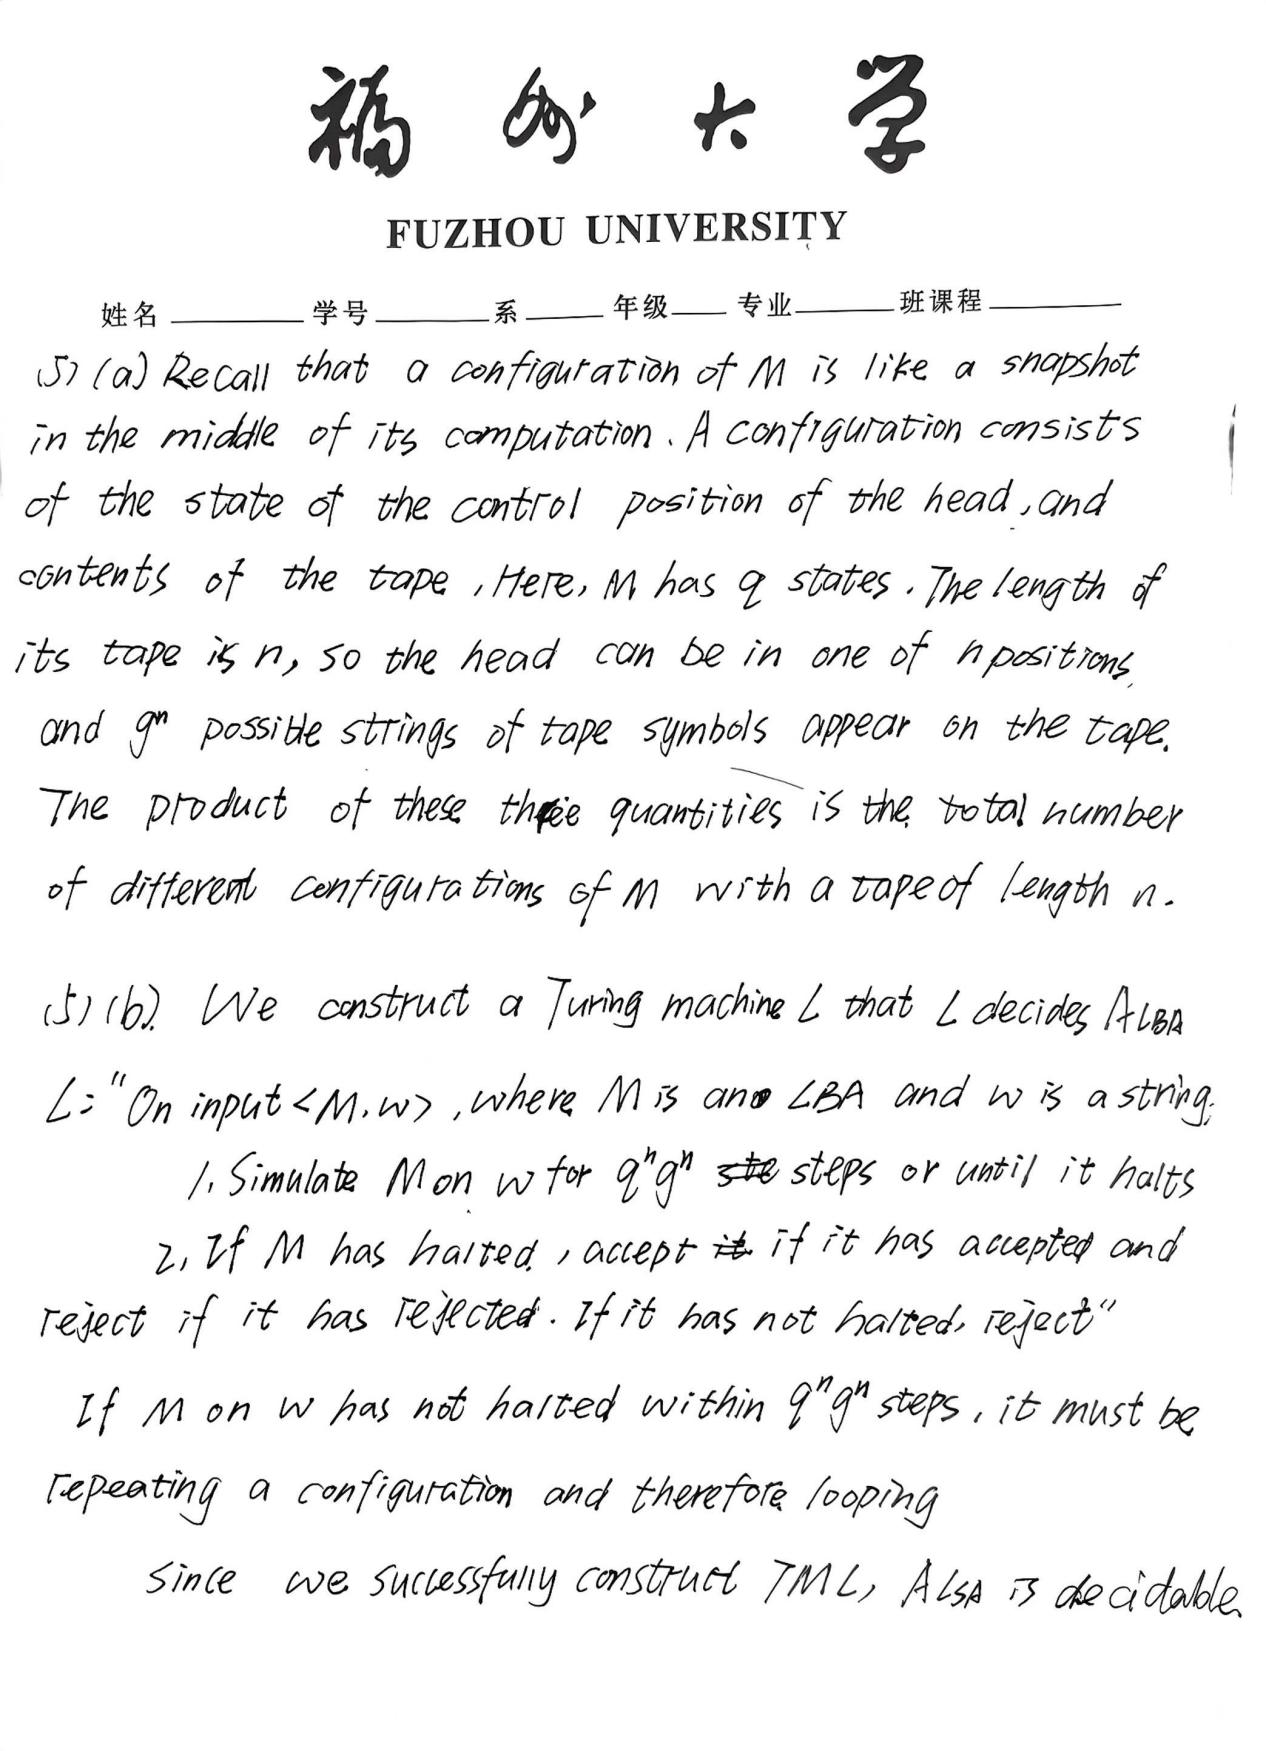 福州大学
FUZHOU UNIVERSITY
姓名 学号 系 年级 专业 班课程
(5) (a) Recall that a configuration of M is like a snapshot
in the middle of its computation. A configuration consists
of the state of the control position of the head, and
contents of the tape, Here, M has q states. The length of
its tape is n, so the head can be in one of n positions,
and gⁿ possible strings of tape symbols appear on the tape.
The product of these three quantities is the total number
of different configurations of M with a tape of length n.
(5) (b). We construct a Turing machine L that L decides ALBA
L= "On input <M,w>, where M is an LBA and w is a string;
1. Simulate M on w for qⁿgⁿ steps or until it halts
2, If M has halted, accept if it has accepted and
reject if it has rejected. If it has not halted, reject"
If M on w has not halted within qⁿgⁿ steps, it must be
repeating a configuration and therefore looping
since we successfully construct TML, ALBA is decidable.